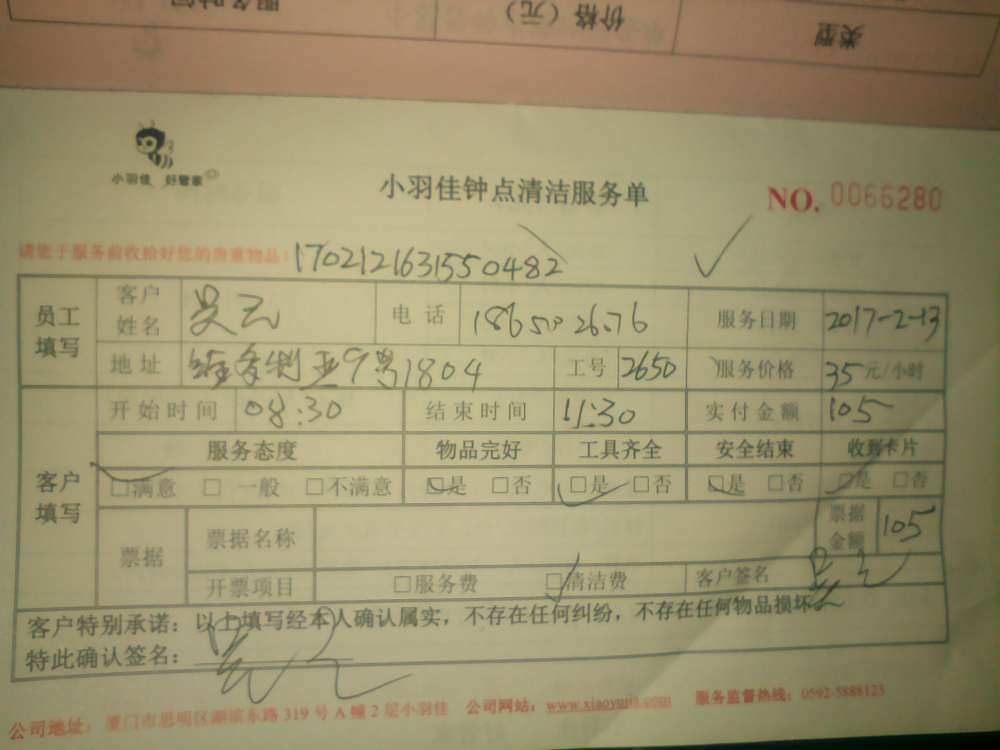 类型 价格（元） 服务时间
小羽佳 好管家
小羽佳钟点清洁服务单
NO. 0066280
请您于服务前收拾好您的贵重物品！ 1702121631550482
员工填写 客户姓名 吴云 电话 服务日期 2017-2-13
地址 维多利亚9号1804 工号 2650 服务价格 35元/小时
客户填写 开始时间 08:30 结束时间 11:30 实付金额 105
服务态度 物品完好 工具齐全 安全结束 收到卡片
□满意 □一般 □不满意 □是 □否 □是 □否 □是 □否 □是 □否
票据 票据名称 票据金额 105
开票项目 □服务费 □清洁费 客户签名
客户特别承诺：以上填写经本人确认属实，不存在任何纠纷，不存在任何物品损坏。
特此确认签名：
公司地址：厦门市思明区湖滨东路319号A幢2层小羽佳 公司网站：www.xiaoyujia.com 服务监督热线：0592-5888123